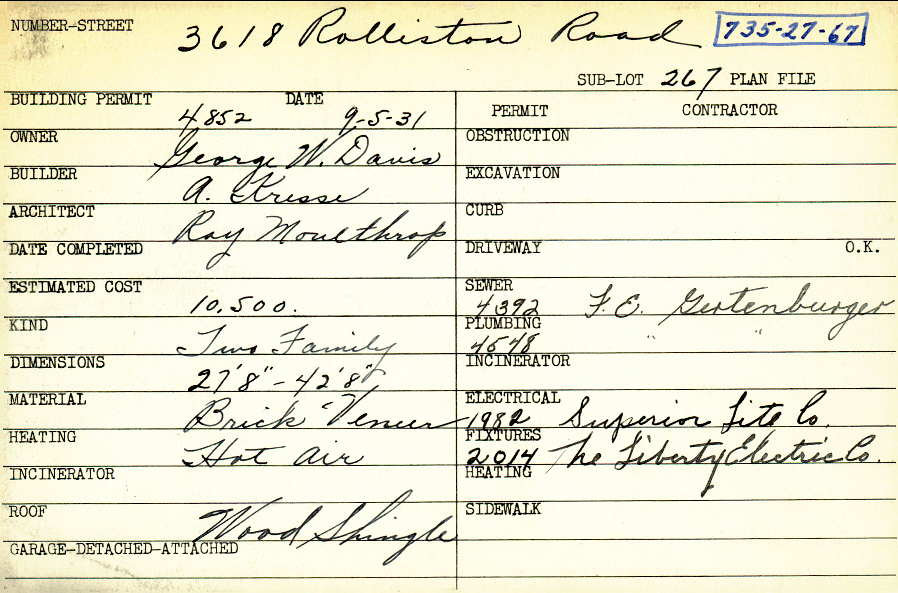 NUMBER-STREET 3618 Rolliston Road 735-27-67
SUB-LOT 267 PLAN FILE
BUILDING PERMIT 4852 DATE 9-5-31
PERMIT CONTRACTOR
OWNER George W. Davis
OBSTRUCTION
BUILDER A. Kresse
EXCAVATION
ARCHITECT Ray Moulthrop
CURB
DATE COMPLETED
DRIVEWAY O.K.
ESTIMATED COST 10,500.
SEWER 4392 F. E. Gertenburger
KIND Two Family
PLUMBING 4548 " "
DIMENSIONS 27'8" - 42'8"
INCINERATOR
MATERIAL Brick Veneer
ELECTRICAL 1982 Superior Lite Co.
HEATING Hot Air
FIXTURES 2014 The Liberty Electric Co.
INCINERATOR
HEATING
ROOF Wood Shingle
SIDEWALK
GARAGE-DETACHED-ATTACHED